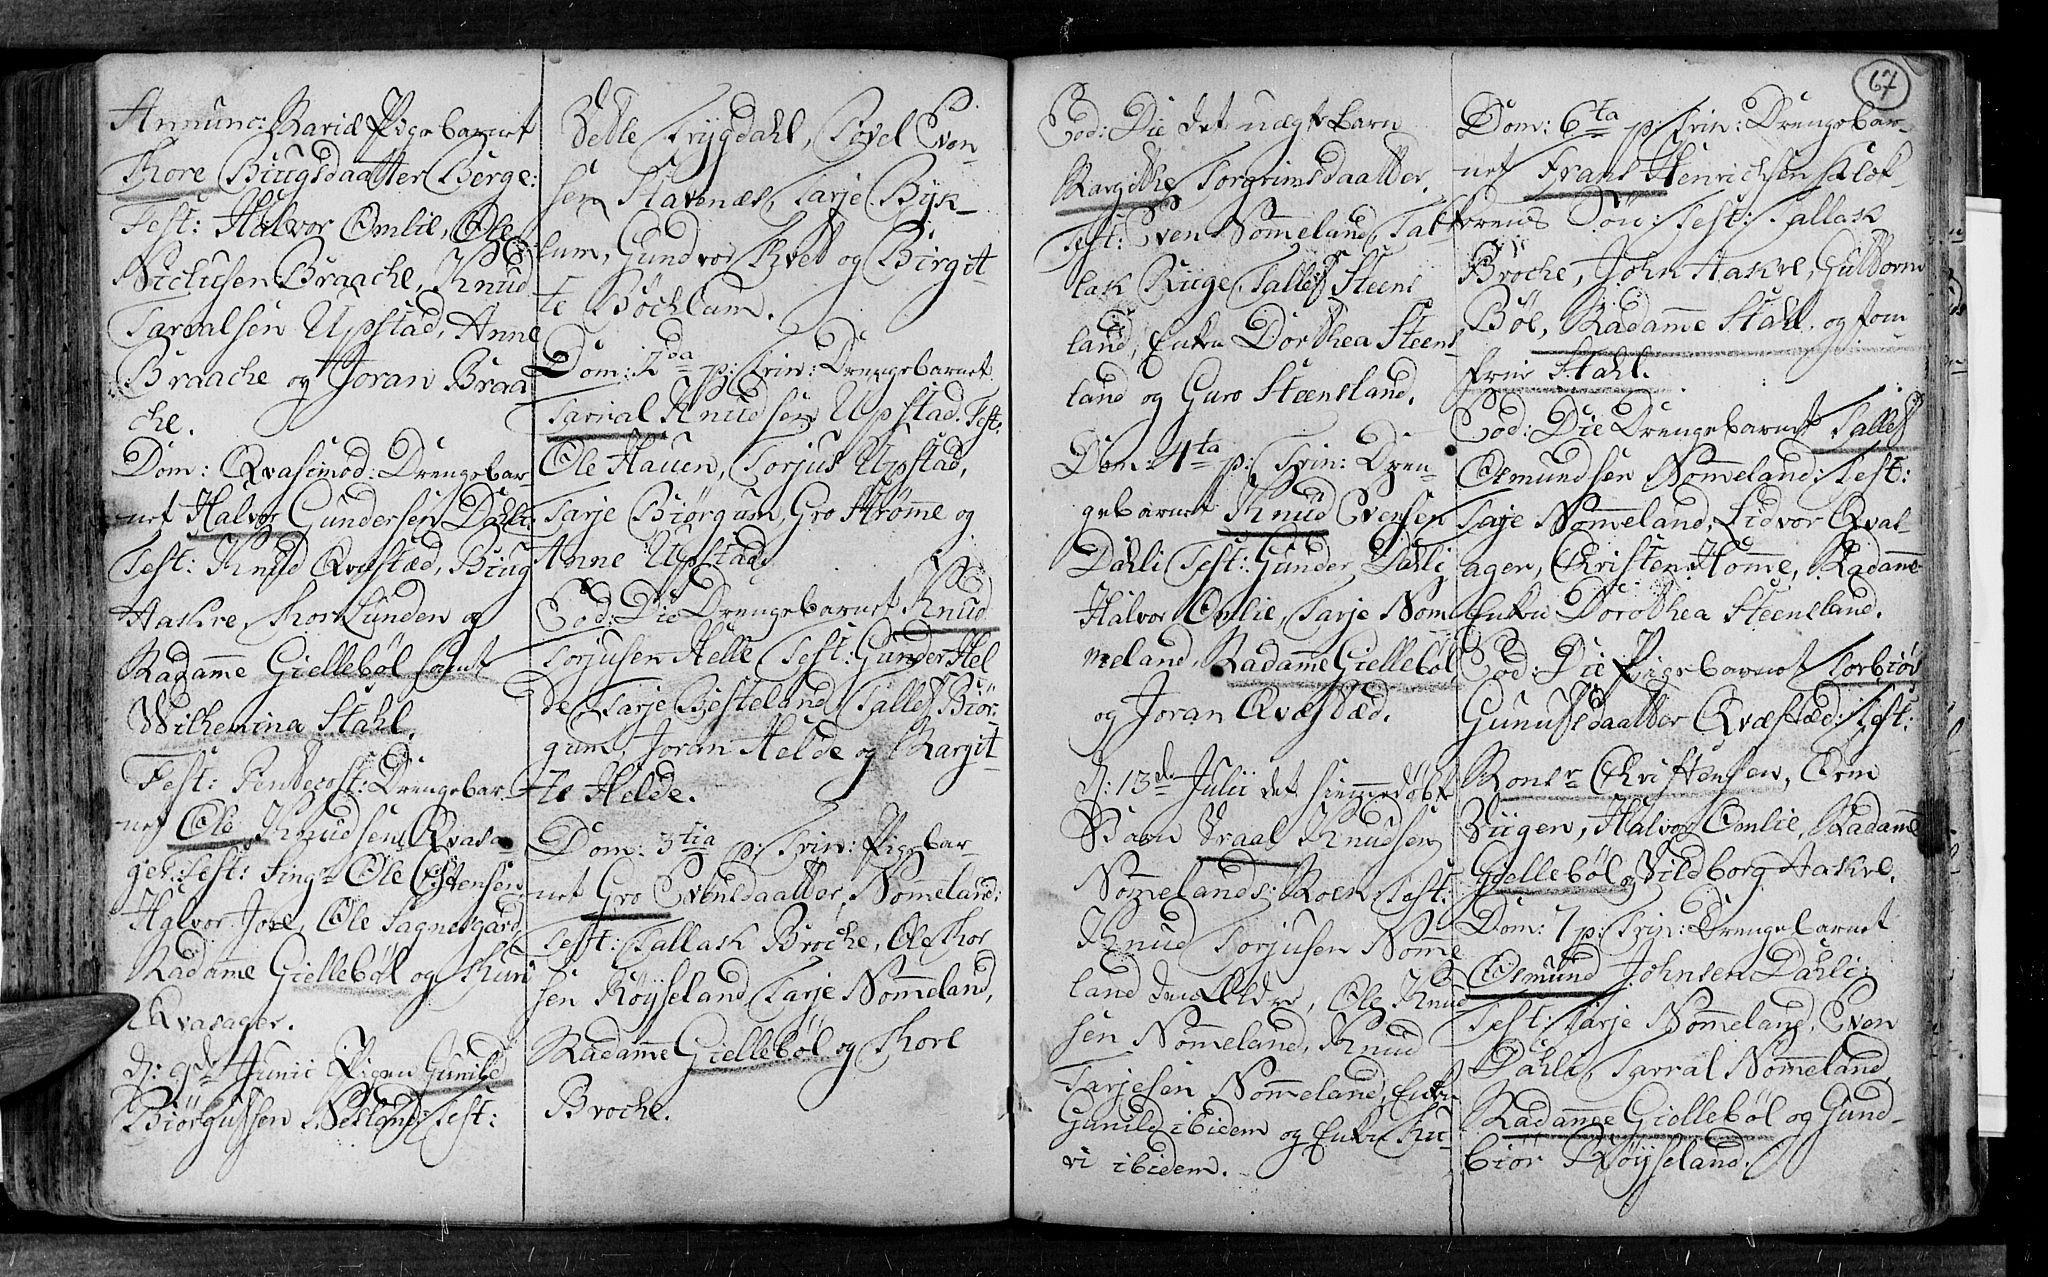 Annunc: Mariæ Pigebarnet
Thore Biugsdaatter Berge:
Test: Halvor Omlie, Ole
Niclusen Braache, Knud
Tarralsen Upstad, Anne
Braache og Joran Braa
che.
Dom: Qvasimod: Drengebar
net Halvor Gundersen Dahli
Test: Knud Qvæstæd, Biug
Haskve, Thor Lunden og
Madamme Giellebøl samt
Wilhemina Stahl.
Fest: Pentecost: Drengebar
net Ole Knudsen Qvasa
ger: Test: Sing: Ole Evensen
Halvor Jore, Ole Sagnesgard,
Madamme Giellebøl og
Qvasager.
d: 9de Junii Pigen Gunild
Biørgussen Nesland: Test:
Trygdahl, Tovel Even-
sen Stavenæs, Tarje Byk-
lum, Gundvor Kved og Birgit
te Bochlum.
Dom: 2da p: Trin: Drengebarnet
Tarral Knudsen Upstad. Test:
Ole Hauen, Torjus Upstad,
Tarje Biørgum, Gro Strømme og
Anne Upstad.
Eod: Die Drengebarnet Knud
Torjusen Helle Test: Gunder Hel
de, Tarje Besteland, Tallef Biør-
gum, Joran Helde og Margit-
te Helde.
Dom: 3tia p: Trin: Pigebar-
net Gro Evensdaatter Nommeland:
Test: Tallask Broche, Ole Thor
sen Røyseland, Tarje Nommeland,
Madamme Giellebøl og Thore
Broche.
67
Eod: Die det uægte barn
Margithe Torgrimsdaatter.
Test: Even Nommeland, Tal-
lak Rige, Tallef Steens
land, Enke Dorthea Steens-
land og Guro Steensland.
Dom: 4ta p: Trin: Dren-
gebarnet Knud Evensen
Dahli Test: Gunder Dahli
Halvor Omlie, Tarje Nom
meland, Madamme Giellebøl
og Joran Qvæstæd.
d: 13de Julii det hiemmedøbt
Barn Draal Knudsen
Nommelands Moen: Test:
Knud Torjusen Nomme
land den Elder, Ole Knud
sen Nommeland, Knud
Tarjesen Nommeland, Enke
Gunild ibidem og Enke
ibidem.
Dom: 6ta p: Trin: Drengebar-
net Frans Henrichsen Klof-
Søn: Test: Tallask
Broche, John Haskve, Guttorm
Bøe, Madamme Stahl og Jom-
frue Stahl.
Eod: Die Drengebarnet Tallef
Osmundsen Nommeland: Test:
Tarje Nommeland, Lidvor Qvas-
ager, Christen Homme, Madamme
Enke Dorothea Steensland.
Eod: Die Pigebarnet Torbiør
Gunufsdaatter Qvæstæd: Test:
Monsr Christensen, Orm
Viigen, Halvor Omlie, Madamme
Giellebøl og Vildborg Haskve.
Dom: 7 p: Trin: Drengebarnet
Osmund Johnsen Dahli:
Test: Tarje Nommeland, Even
Dahli, Tarral Nommeland
Madamme Giellebøl og Gund-
biør Røyseland.